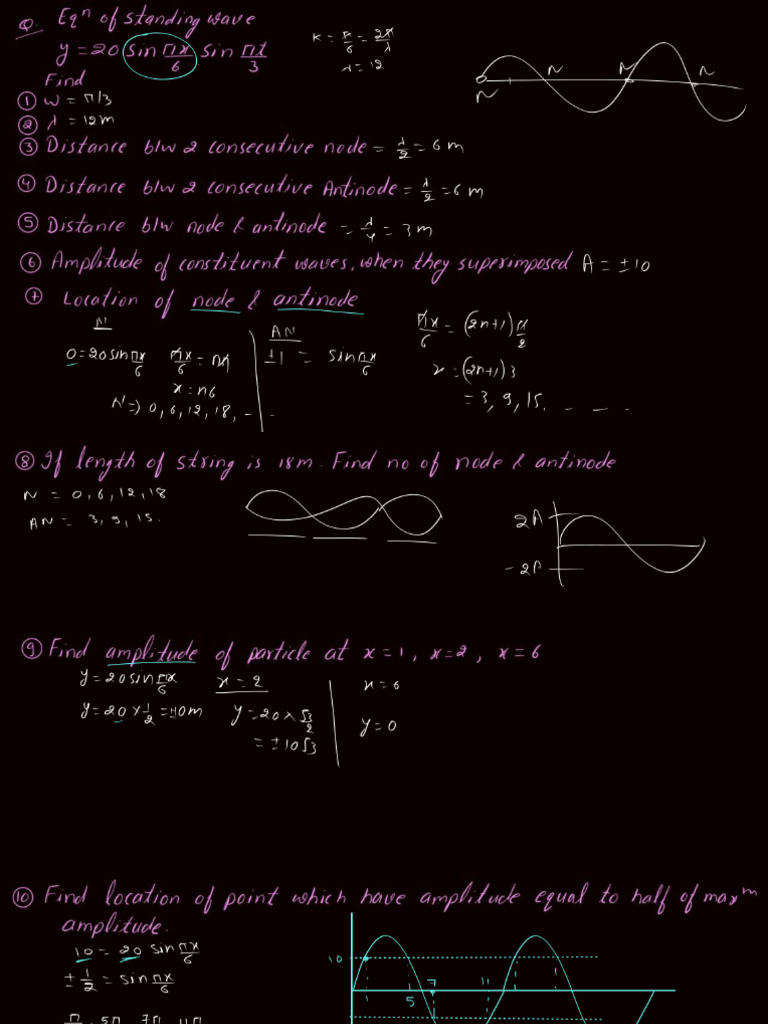 Q. Eqⁿ of standing wave
y = 20 sin πx/6 sin πt/3
K = π/6 = 2π/λ
λ = 12
Find
① ω = π/3
② λ = 12m
N N N N
③ Distance b/w 2 consecutive node = λ/2 = 6m
④ Distance b/w 2 consecutive Antinode = λ/2 = 6m
⑤ Distance b/w node & antinode = λ/4 = 3m
⑥ Amplitude of constituent waves, when they superimposed A = ±10
⑦ Location of node & antinode
N
0 = 20 sin πx/6 πx/6 = nπ
x = n6
N ⇒ 0, 6, 12, 18, - - -
AN
±1 = sin πx/6
πx/6 = (2n+1) π/2
x = (2n+1) 3
= 3, 9, 15, - - -
⑧ If length of string is 18m. Find no of node & antinode
N = 0, 6, 12, 18
AN = 3, 9, 15.
2A
-2A
⑨ Find amplitude of particle at x = 1, x = 2, x = 6
y = 20 sin πx/6
y = 20 × 1/2 = ±10m
x = 2
y = 20 × √3/2
= ±10√3
x = 6
y = 0
⑩ Find location of point which have amplitude equal to half of maxᵐ
amplitude.
10 = 20 sin πx/6
±1/2 = sin πx/6
10
1 5 7 11